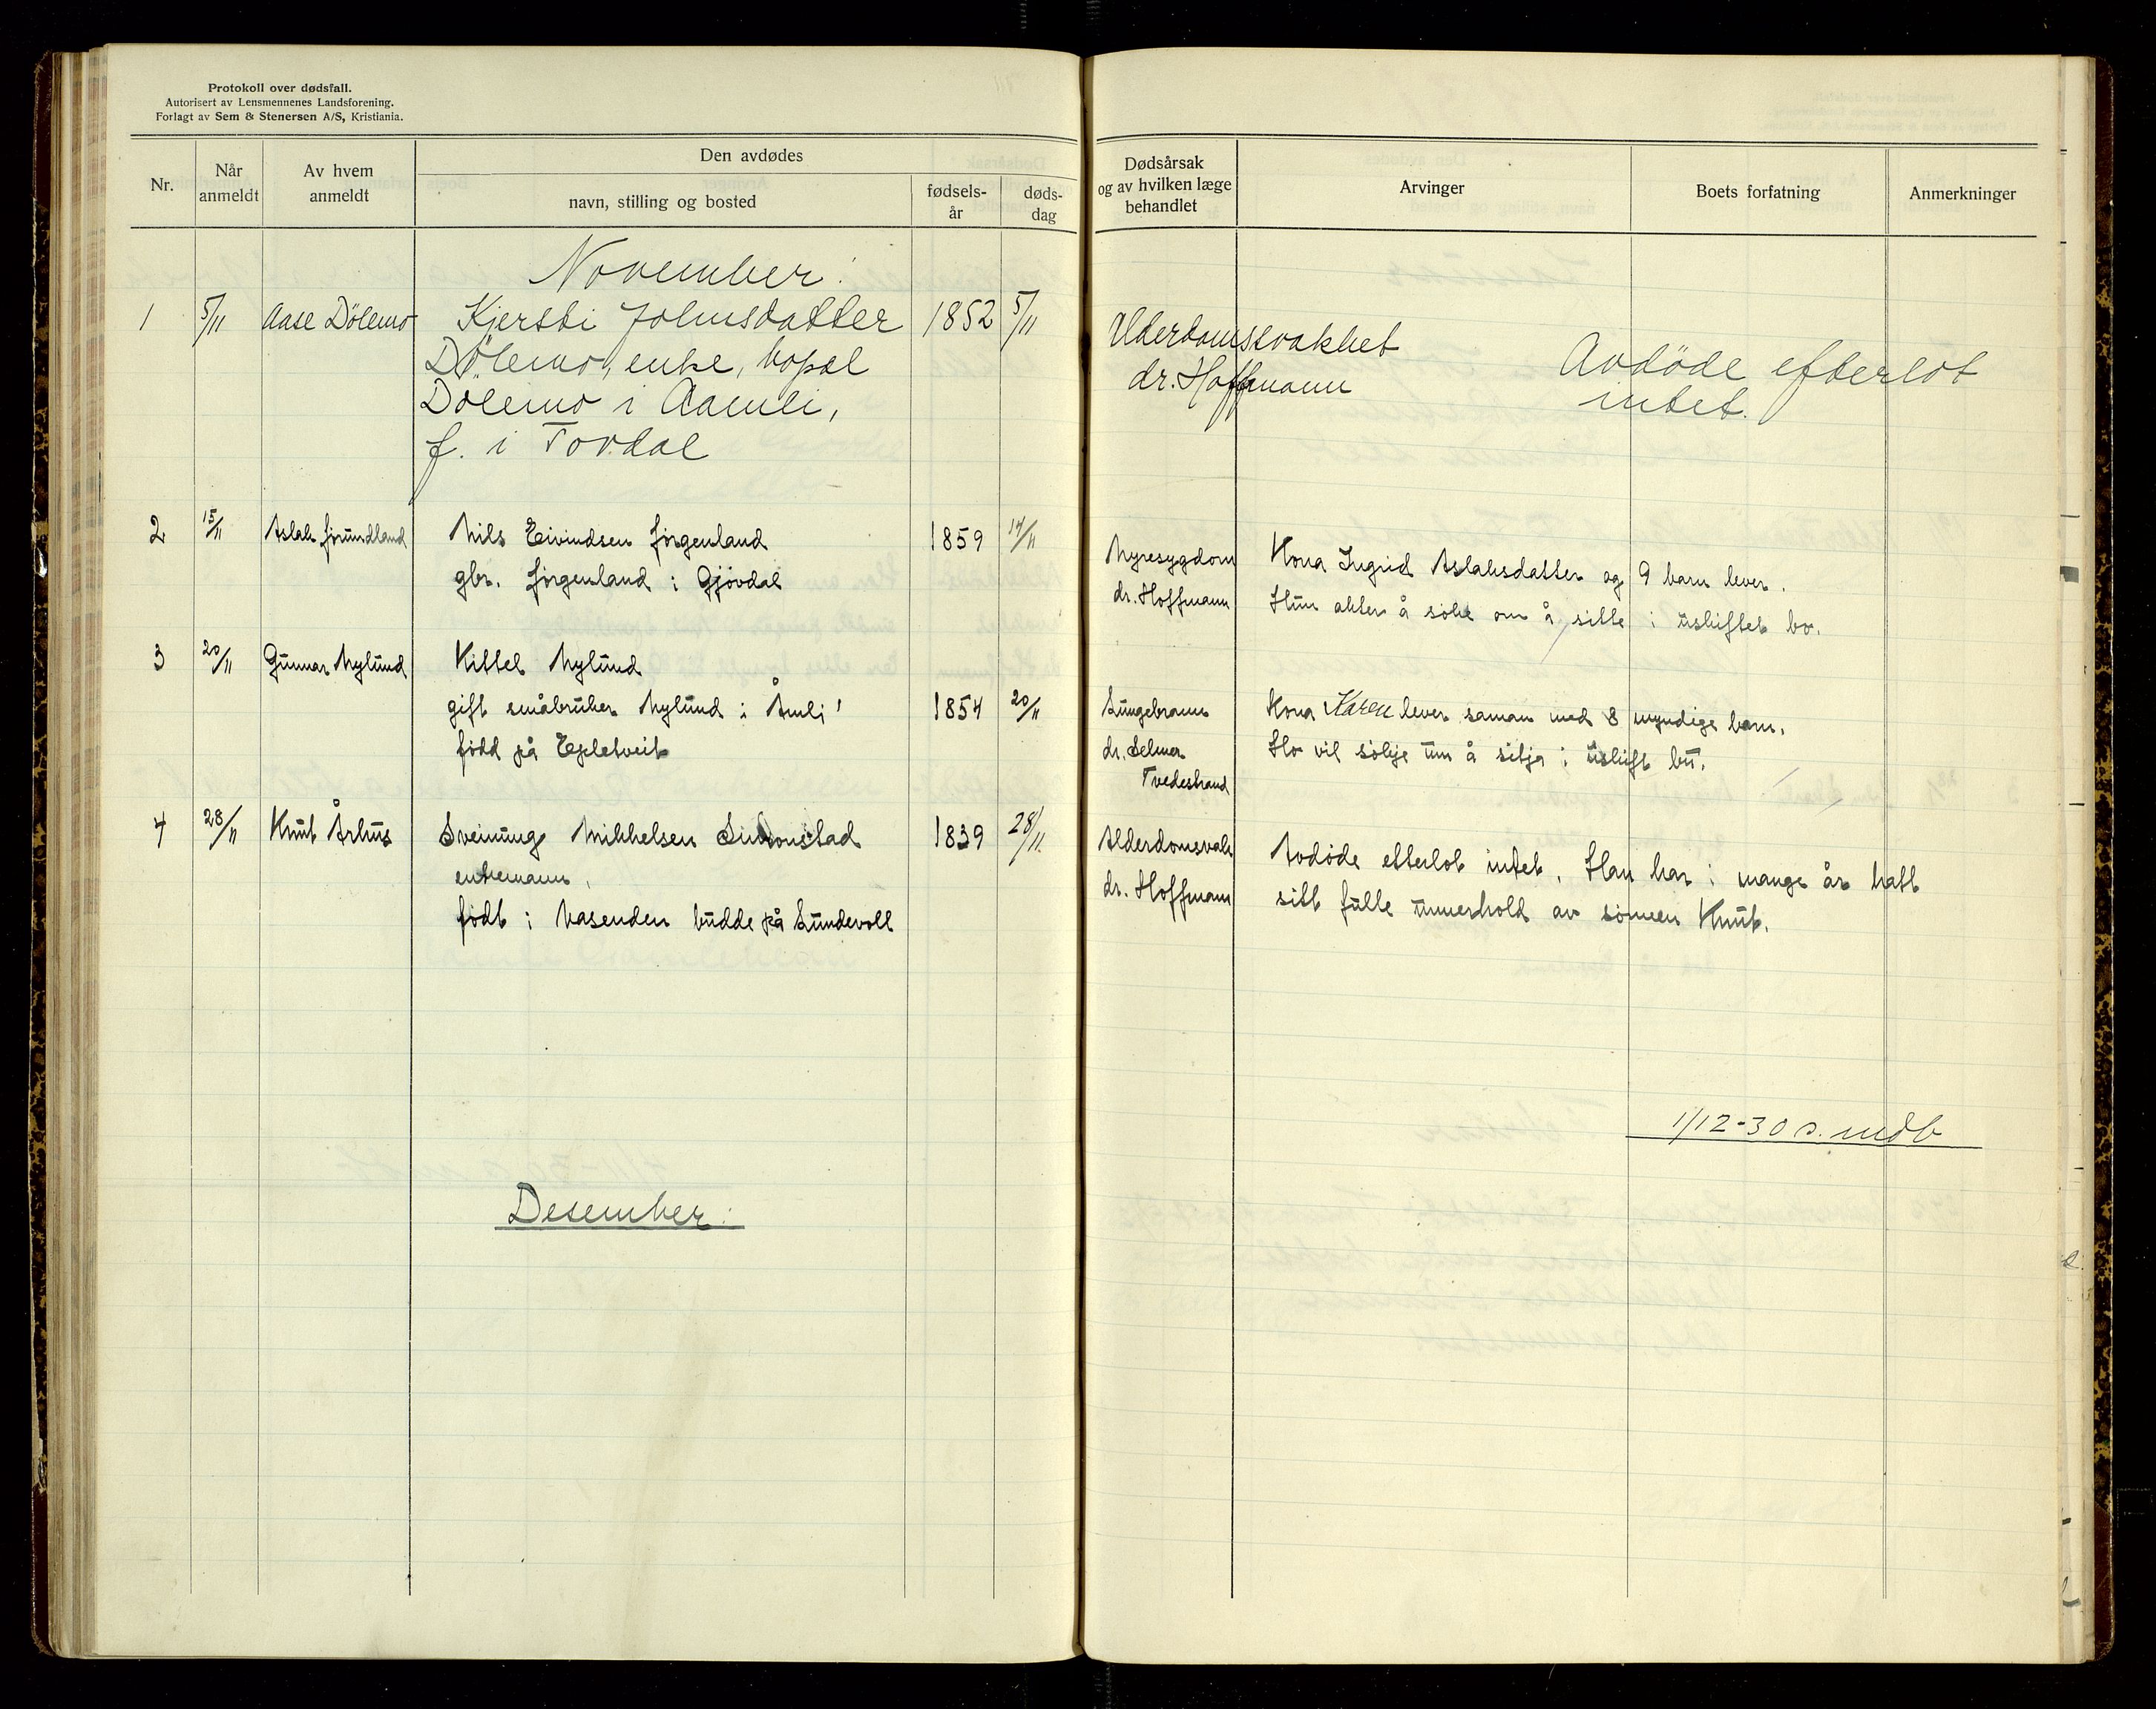 Protokoll over dødsfall.
Autorisert av Lensmennenes Landsforening.
Forlagt av Sem & Stenersen A/S, Kristiania.
Nr.
Når anmeldt
Av hvem anmeldt
Den avdødes
navn, stilling og bosted
fødsels-år
døds-dag
Dødsårsak og av hvilken læge behandlet
Arvinger
Boets forfatning
Anmerkninger
November:
1 5/11 Aase Dölemo Kjersti Johnsdatter 1852 5/11
Dölemo, enke, bopæl
Dölemo i Aamli,
f. i Tovdal
Alderdomssvakhet
dr. Hoffmann
Avdöde efterlot
intet.
2 15/11 Aslak Jörundland Nils Eivindsen Jörgenland 1859 14/11
gbr. Jörgenland i Gjövdal
Nyresygdom
dr. Hoffmann
Kona Ingrid Aslaksdatter og 9 barn lever.
Hun akter å söke om å sitte i uskiftet bo.
3 20/11 Gunnar Nylund Kittel Nylund
gift småbruker Nylund i Åmli 1854 20/11
född på Epletveit
Lungebram
dr. Selmer
Tvedestrand
Kona Karen lever saman med 8 myndige barn.
Ho vil sökje um å sitja i uskift bu.
4 28/11 Knut Århus Sveinung Mikkelsen Simonstad 1839 28/11
enkemann,
födt i Vasenden budde på Lundevoll
Alderdomsvak
dr. Hoffmann
Avdöde etterlot intet. Han har i mange år hatt
sitt fulle underhold av sönnen Knut.
1/12-30 s. mdb
Desember: